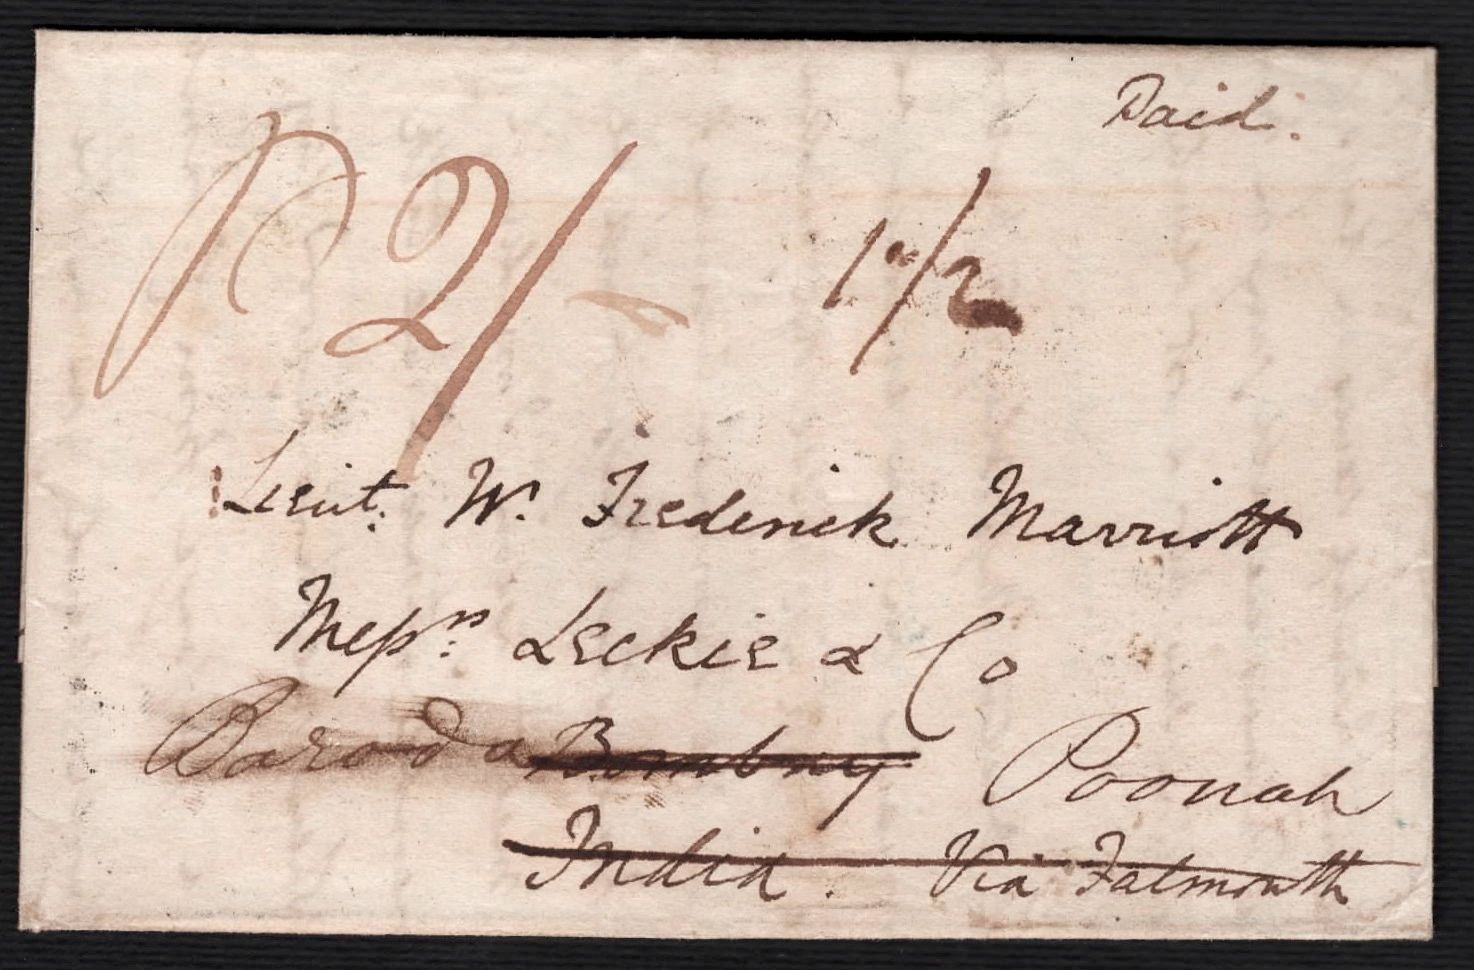 Paid.
P 2/- 1"/2
Lieut. Wm. Frederick Marriott
Messrs. Leckie & Co
Baroda Bombay Poonah
India. Via Falmouth